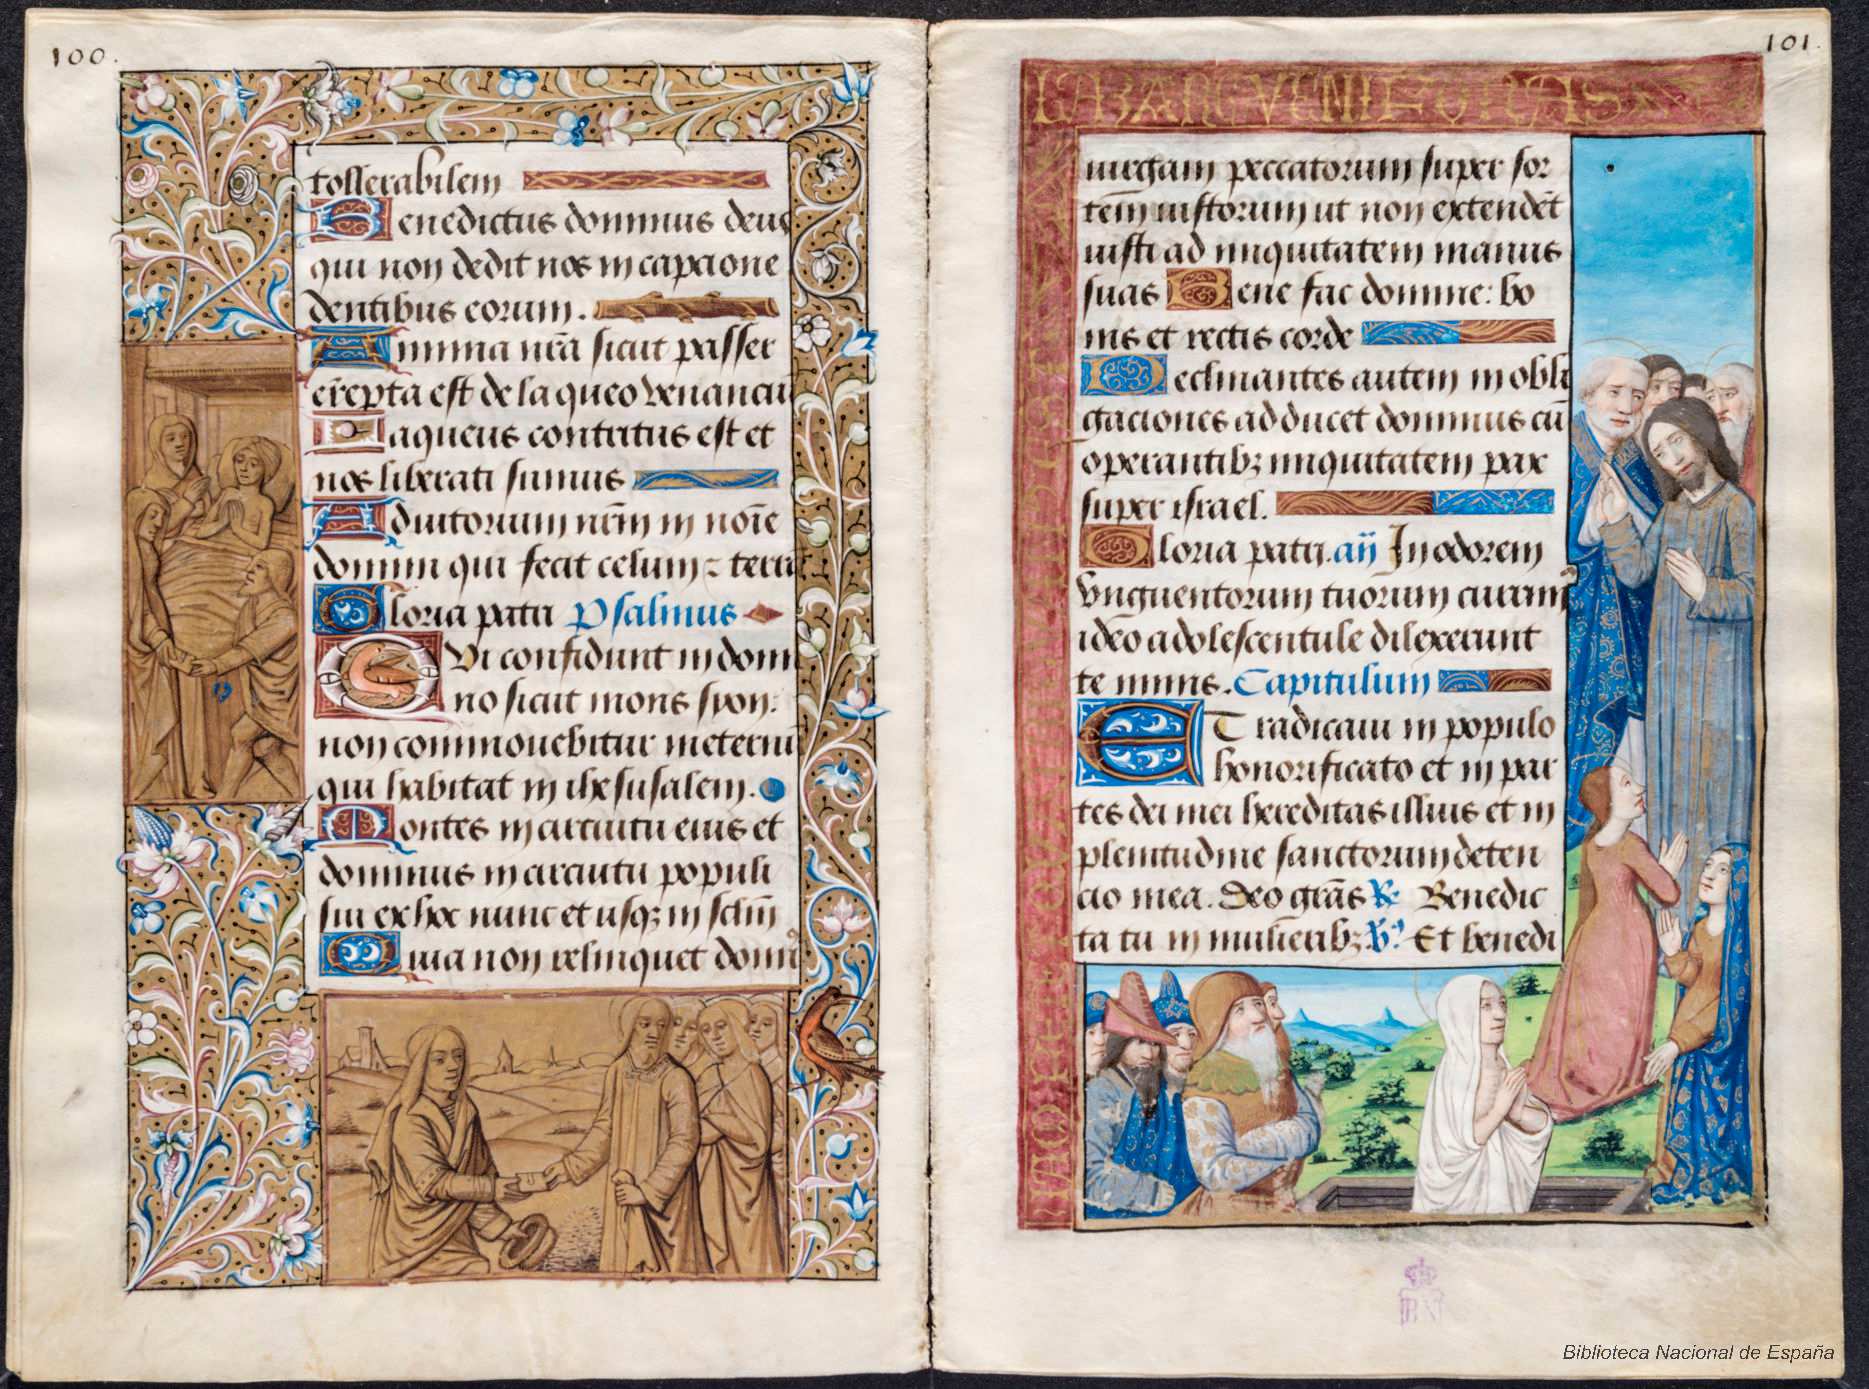 100.
tollerabilem
Benedictus dominus deus
qui non dedit nos in capcione
dentibus eorum.
Anima nr̄a sicut passer
erepta est de laqueo venanciū
Laqueus contritus est et
nos liberati sumus
Adiutorium nr̄m in noīe
domini qui fecit celum et terrā
Gloria patri Psalmus
Qui confidunt in domi
no sicut mons syon:
non commouebitur in eternū
qui habitat in ihesusalem.
Montes in circuitu eius et
dominus in circuitu populi
sui ex hoc nunc et usqꝫ in sclm̄
Quia non relinquet domin9
101.
LAZARE VENI FORAS
uirgam peccatorum super sor
tem iustorum ut non extendēt
iusti ad iniquitatem manus
suas Bene fac domine: bo
nis et rectis corde
Declinantes autem in obli
gaciones adducet dominus cū
operantibꝫ iniquitatem pax
super israel.
Gloria patri. añ In odorem
vnguentorum tuorum currimꝰ
ideo adolescentule dilexerunt
te nimis. Capitulum
ET radicaui in populo
honorificato et in par
tes dei mei hereditas illius et in
plenitudine sanctorum deten
cio mea. Deo grās ℟ Benedic
ta tu in mulieribꝫ ℣ Et benedi
Biblioteca Nacional de España